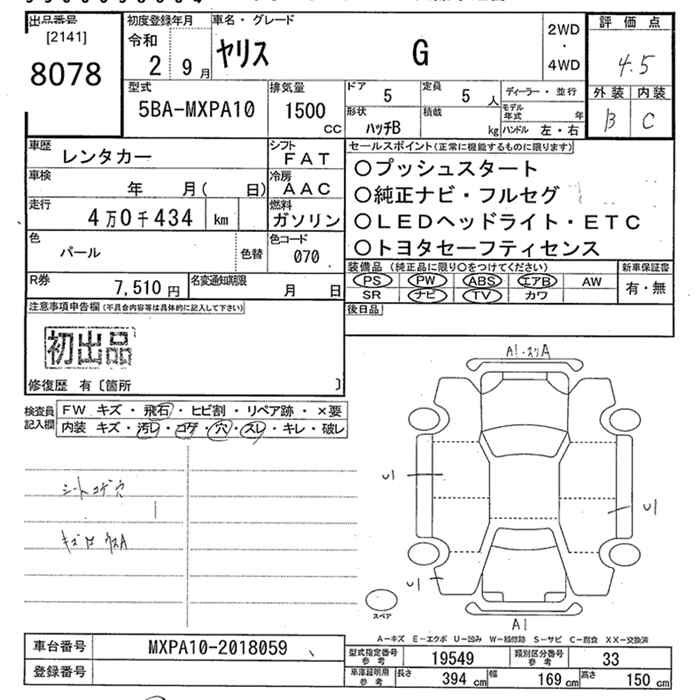 出品番号
[2141]
8078
初度登録年月
令和
2 9月
車名・グレード
ヤリス G
2WD
・
4WD
評価点
4.5
外装 内装
B C
型式
5BA-MXPA10
排気量
1500
CC
ドア 5
定員 5 人
形状 ハッチB
積載 kg
ディーラー・並行
モデル年式 年
ハンドル 左・右
車歴 レンタカー
シフト FAT
車検 年 月( 日)
冷房 AAC
走行 4万0千434 km
燃料 ガソリン
色 パール
色替
色コード 070
R券 7,510円
名変通知期限 月 日
セールスポイント(正常に機能するものに限ります)
○プッシュスタート
○純正ナビ・フルセグ
○LEDヘッドライト・ETC
○トヨタセーフティセンス
装備品(純正品に限り○をつけてください)
PS PW ABS エアB AW
SR ナビ TV カワ
新車保証書
有・無
後日品
注意事項申告欄(不具合内容等は具体的に記入して下さい)
初出品
修復歴 有〔箇所 〕
検査員記入欄
FW キズ・飛石・ヒビ割・リペア跡・×要
内装 キズ・汚レ・コゲ・穴・スレ・キレ・破レ
シートコゲ穴
A1・スリA
U1
U1
U1
A1
スペア
A-キズ E-エクボ U-凹み W-補修跡 S-サビ C-腐食 XX-交換済
車台番号 MXPA10-2018059
登録番号
型式指定番号参考 19549
類別区分番号参考 33
車庫証明用参考
長さ 394 cm
幅 169 cm
高さ 150 cm